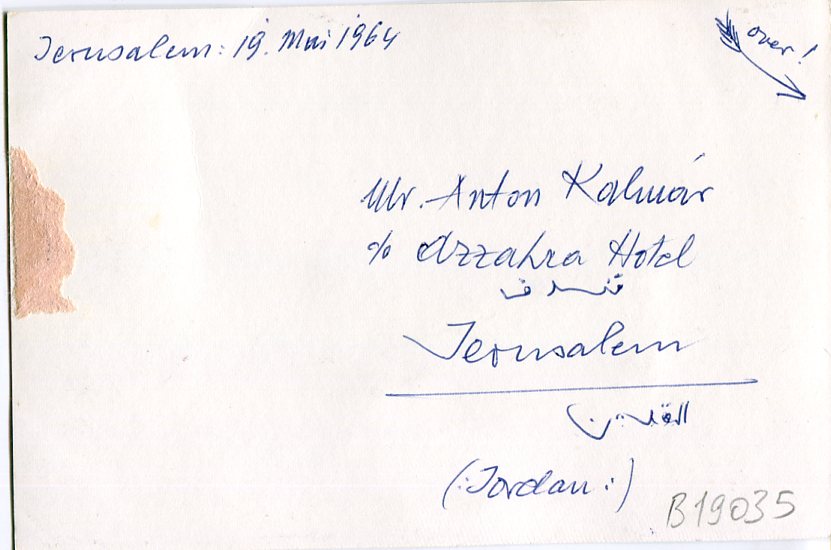 Jerusalem: 19. Mai 1964
over!
Mr. Anton Kalmár
c/o Azzahra Hotel
فندق
Jerusalem
القدس
(:Jordan:)
B19035